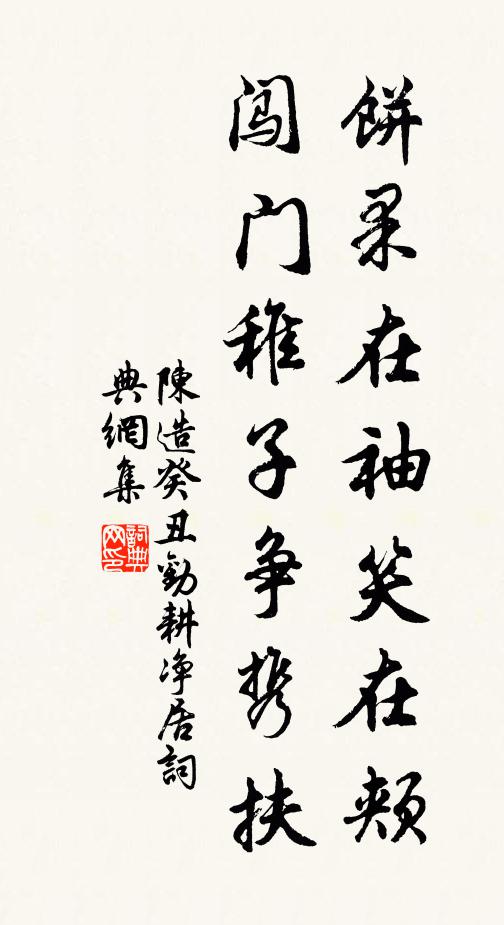 餅果在袖笑在頰
闯门稚子争携扶
陳造癸丑勸耕净居詞
典網集
詞典网印